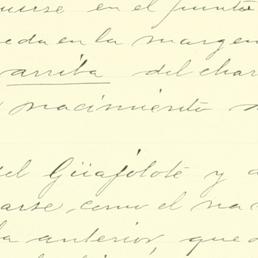 en el punto
eda en la margen
arriba del char
nacimiento
del Güajolote y
arse, como el na
la anterior, que